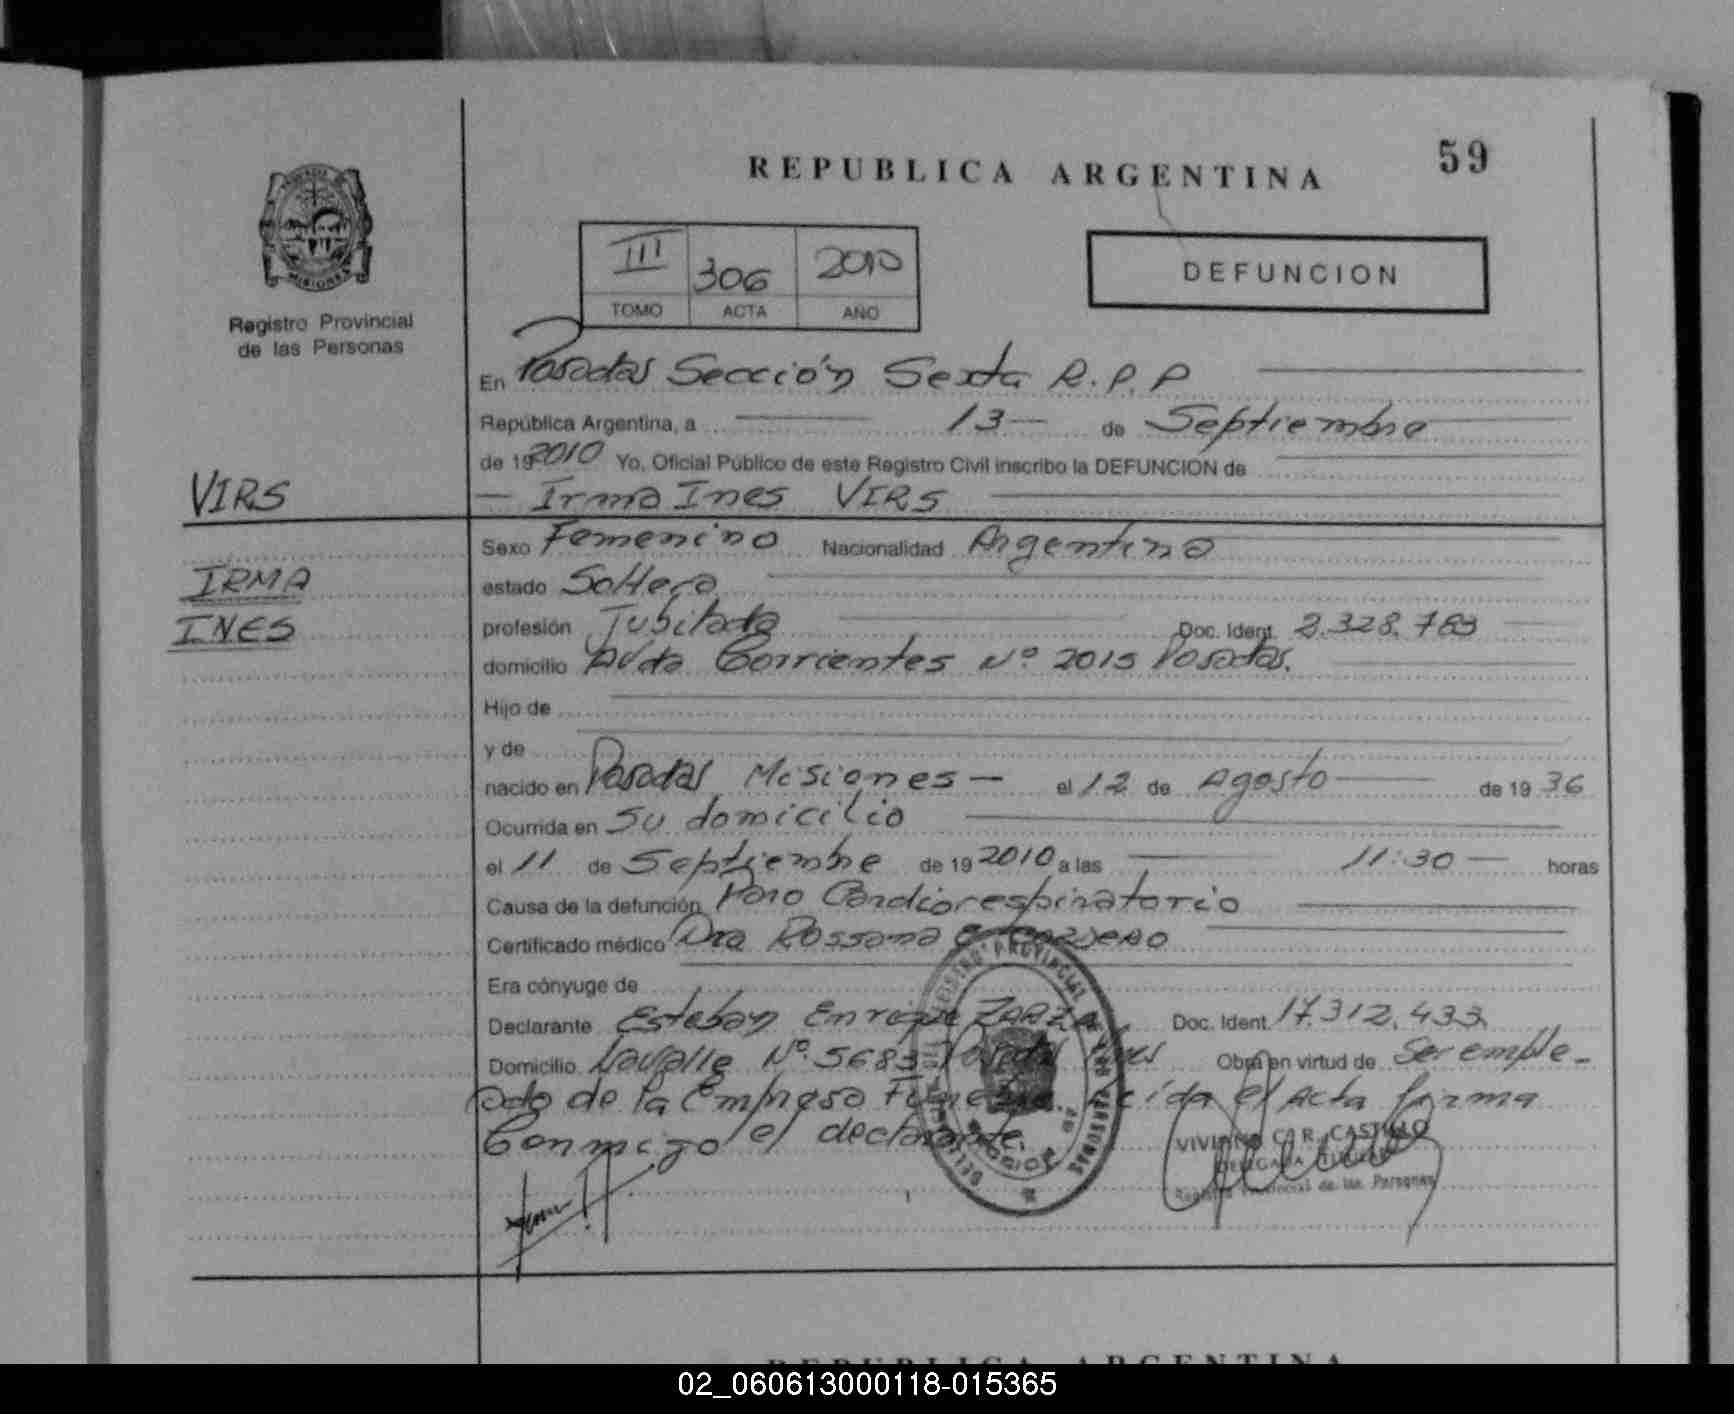 59
REPUBLICA ARGENTINA
III 306 2010
TOMO ACTA AÑO
DEFUNCION
MISIONES
Registro Provincial
de las Personas
En Posadas Sección Sexta R.P.P
República Argentina, a 13 de Septiembre
de 192010 Yo, Oficial Público de este Registro Civil inscribo la DEFUNCION de
VIRS
Irma Ines VIRS
IRMA
INES
Sexo Femenino Nacionalidad Argentina
estado Soltera
profesión Jubilada Doc. Ident. 2.328.783
domicilio Avda Corrientes Nº 2015 Posadas.
Hijo de
y de
nacido en Posadas Misiones el 12 de Agosto de 19 36
Ocurrida en Su domicilio
el 11 de Septiembre de 19 2010 a las 11:30 horas
Causa de la defunción Paro Cardiorespiratorio
Certificado médico Dra Rossana
Era cónyuge de
Declarante Esteban Enrique ZARZA Doc. Ident. 17.312.433
Domicilio Lavalle Nº 5683 Posadas Obra en virtud de Ser emple-
ado de la Empresa el Acta firma
Conmigo el declarante.
REGISTRO PROVINCIAL DE LAS PERSONAS
CASTILLO
Registro Provincial de las Personas
REPUBLICA ARGENTINA
02_060613000118-015365